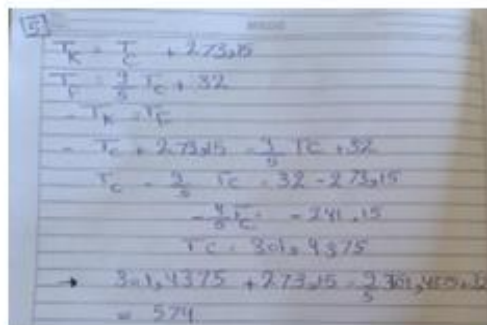 5
T_K = T_C + 273,15
T_F = 9/5 T_C + 32
- T_K = T_F
- T_C + 273,15 = 9/5 TC + 32
T_C - 9/5 T_C = 32 - 273,15
-4/5 T_C = -241.15
TC = 301,4375
→ 301,4375 + 273,15 = 9/5 301,4375+32
= 574